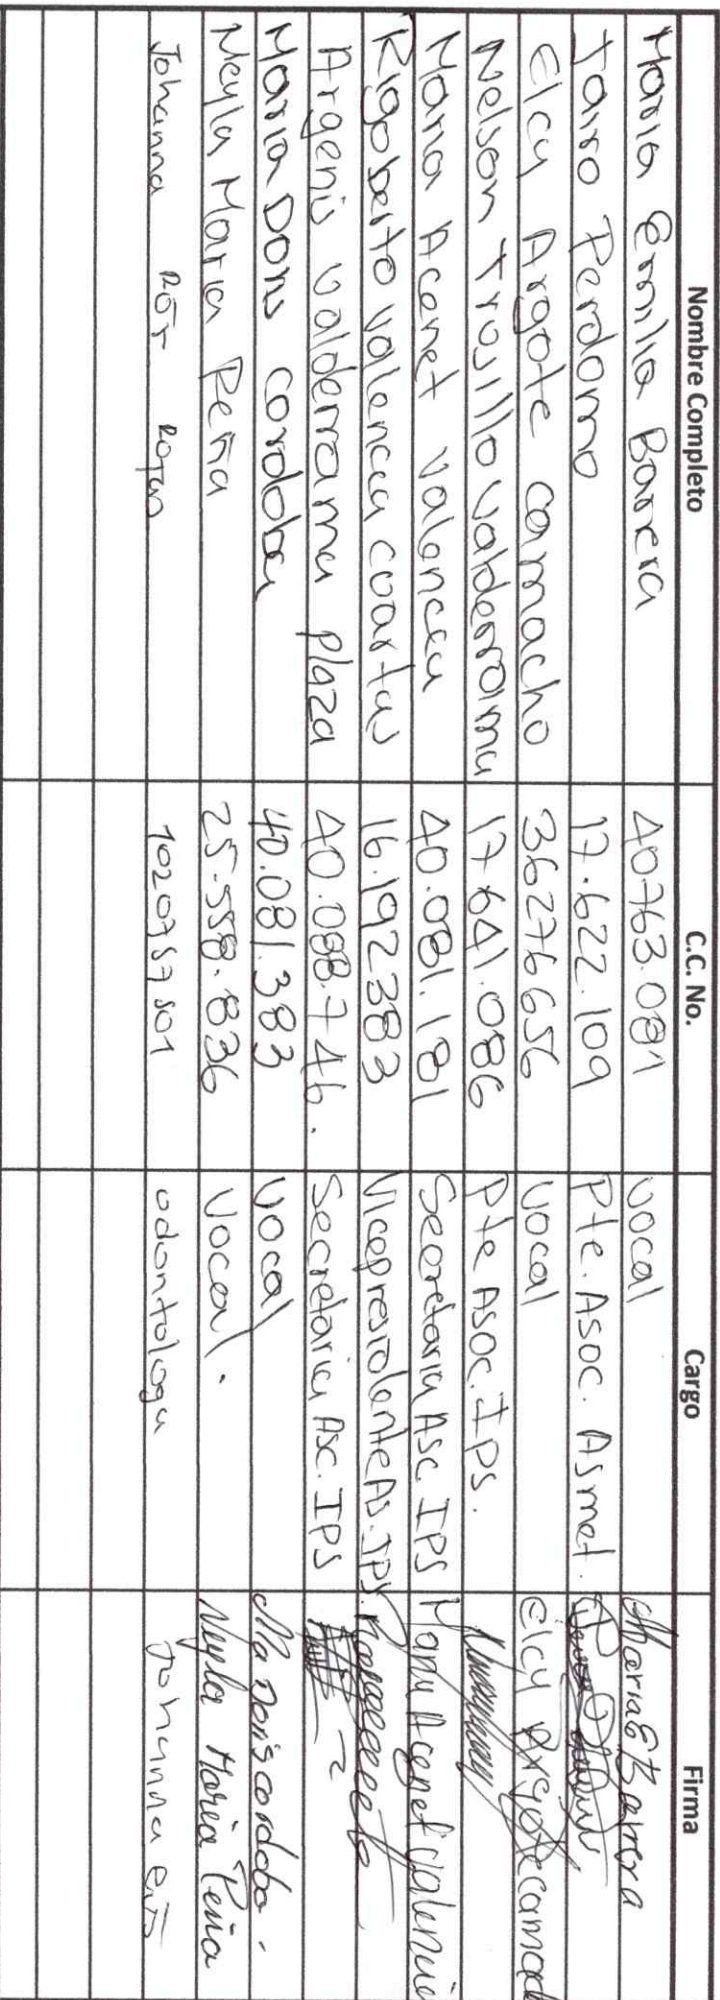 Nombre Completo C.C. No. Cargo Firma
Maria Emilia Barrera 40.763.081 vocal Maria E Barrera
Jairo Perdomo 17.622.109 Pte. Asoc. Asmet.
Elcy Argote Camacho 36276656 vocal Elcy Argote Camach
Nelson Trujillo Valderrama 17.641.086 Pte Asoc. IPS.
Maria Acenet Valencia 40.081.181 Secretaria Asc IPS Maria Acenet Valencia
Rigoberto Valencia Cuartas 16.192383 Vicepresidente As. IPS.
Argenis Valderrama plaza 40.088.746. Secretaria Asc. IPS
Maria Doris Cordoba 40.081.383 vocal Ma Doris cordoba.
Neyla Maria Peña 25.558.836 Vocal. Neyla Maria Peña
Johanna 1020757501 odontologa Johanna